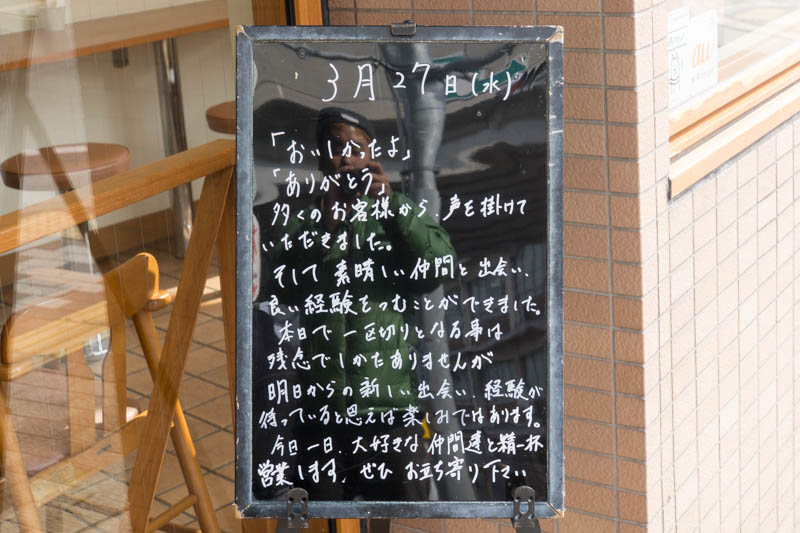 3月27日(水)
「おいしかったよ」
「ありがとう」
多くのお客様から、声を掛けて
いただきました。
そして素晴しい仲間と出会い、
良い経験をつむことができました。
本日で一区切りとなる事は
残念でしかたありませんが
明日からの新しい出会い、経験が
待っていると思えば楽しみではあります。
今日一日、大好きな仲間達と精一杯
営業します、ぜひお立ち寄り下さい
au